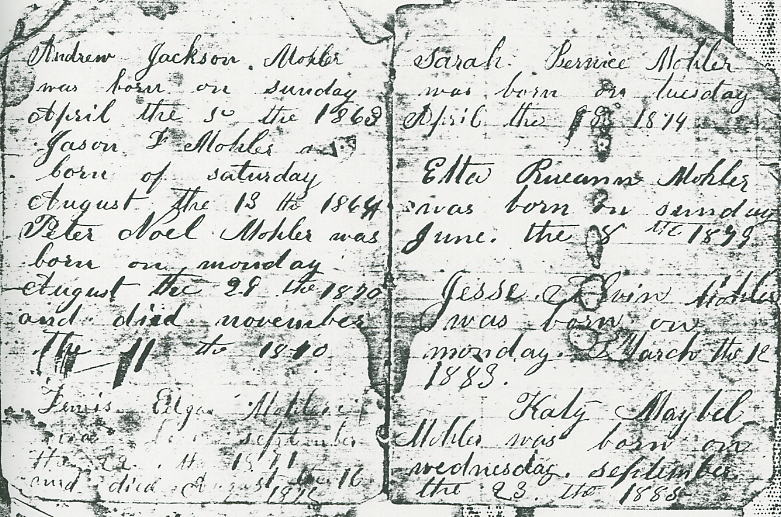 Andrew Jackson. Mohler
was born on sunday
April the 5 the 1868
Jason F Mohler was
born of saturday
August the 13 th 1864
Peter Noel Mohler was
born on monday
August the 29 the 1870
and died november
the 11 the 1870
Lewis Edgar Mohler
was born september
the 22. the 1871
and died August the 16
Sarah. Bernice Mohler
was born on tuesday
April the 1874
Etta Rueann Mohler
was born on sunday
June. the 8 the 1879
Jesse Alvin Mohler
was born on
monday. March the 12
1883.
Katy Maybel
Mohler was born on
wednesday. september
the 23. the 1885